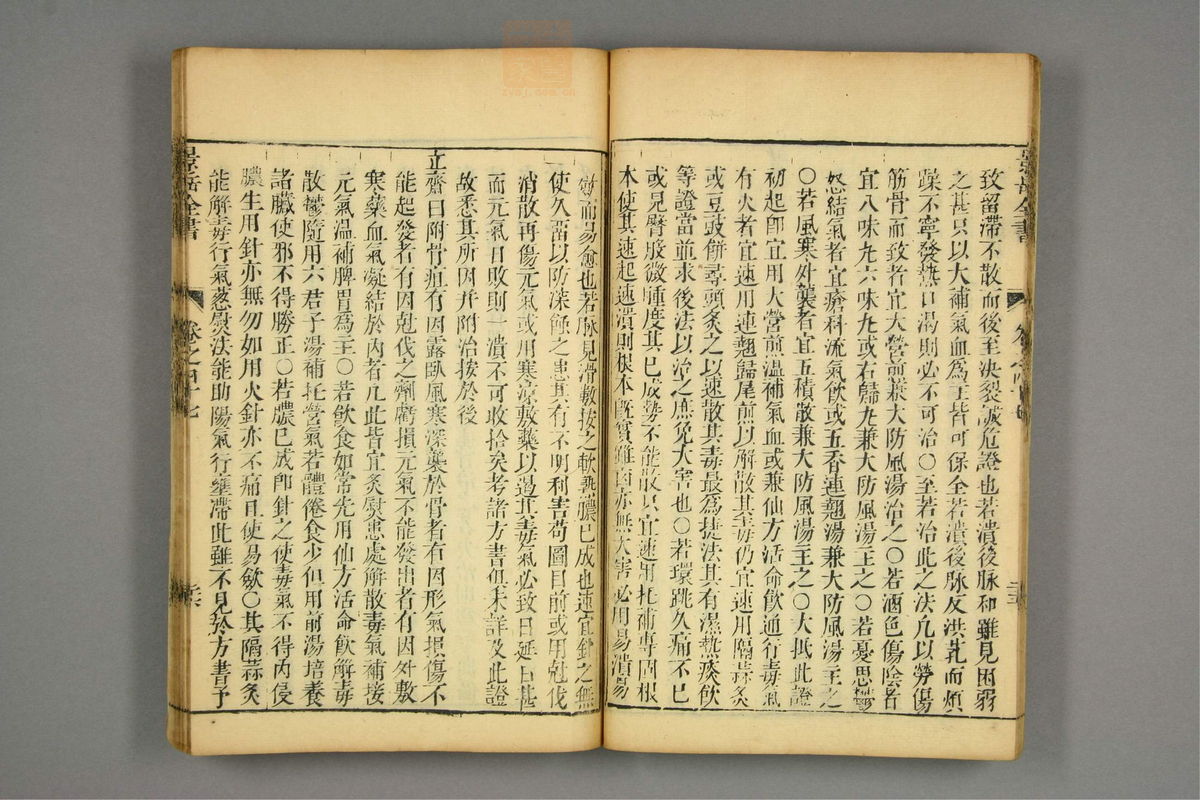 致留滯不散而後至决裂誠危證也若潰後脉和雖見困弱
之甚只以大補氣血爲主皆可保全若潰後脉反洪乳而煩
躁不寧發熱口渴則必不可治○至若治此之法凡以勞傷
筋骨而致者宜大營煎兼大防風湯治之○若酒色傷陰者
宜八味九六味九或右歸九兼大防風湯主之○若憂思鬱
怒結氣者宜瘡科流氣飲或五香連翹湯兼大防風湯主之
○若風寒外襲者宜五積散兼大防風湯主之○大抵此證
初起卽宜用大營煎温補氣血或兼仙方活命飲通行毒氣
有火者宜速用連翹歸尾煎以解散其毒仍宜速用隔蒜灸
或豆豉餅壽頭灸之以速散其毒最爲捷法其有濕熱痰飲
等證當並求後法以治之庶免大害也○若環跳久痛不已
或見臀股微腫度其已成勢不能散只宜速用托補專固根
本使其速起速潰則根本旣實雖潰亦無大害必用易潰易
斂而易愈也若脉見滑數按之軟熟膿已成也速宜針之無
使久畱以防深蝕之患其有不明利害苟圖目前或用尅伐
消散再傷元氣或用寒凉敷藥以遏其毒氣必致日延日甚
而元氣日敗則一潰不可收拾矣考諸方書俱未詳及此證
故悉其所因并附治按於後
立齋曰附骨疽有因露臥風寒深襲於骨者有因形氣損傷不
能起發者有因尅伐之劑虧損元氣不能發出者有因外敷
寒藥血氣凝結於内者凡此皆宜灸熨患處解散毒氣補接
元氣温補脾胃爲主○若飲食如常先用仙方活命飲解毒
散鬱隨用六君子湯補托營氣若體倦食少但用前湯培養
諸臟使邪不得勝正○若膿已成卽針之使毒氣不得内侵
膿生用針亦無勿如用火針亦不痛且使易斂○其隔蒜灸
能解毒行氣葱熨法能助陽氣行壅滯此雖不見於方書予
景岳全書
卷之四十七